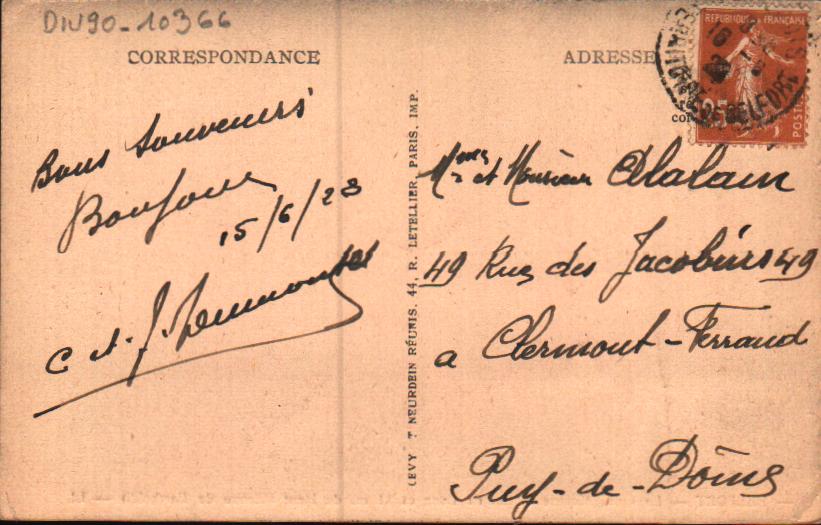 DIV90-10366
CORRESPONDANCE
Bons Souvenirs
Bonjour
15/6/23
C et J.
LEVY ET NEURDEIN RÉUNIS. 44, R. LETELLIER, PARIS, IMP.
ADRESSE
REPUBLIQUE FRANÇAISE
25
POSTES
BELFORT
Mmes et Monsieur Alalain
49 Rue des Jacobins 49
a Clermont-Ferrand
Puy-de-Dôme